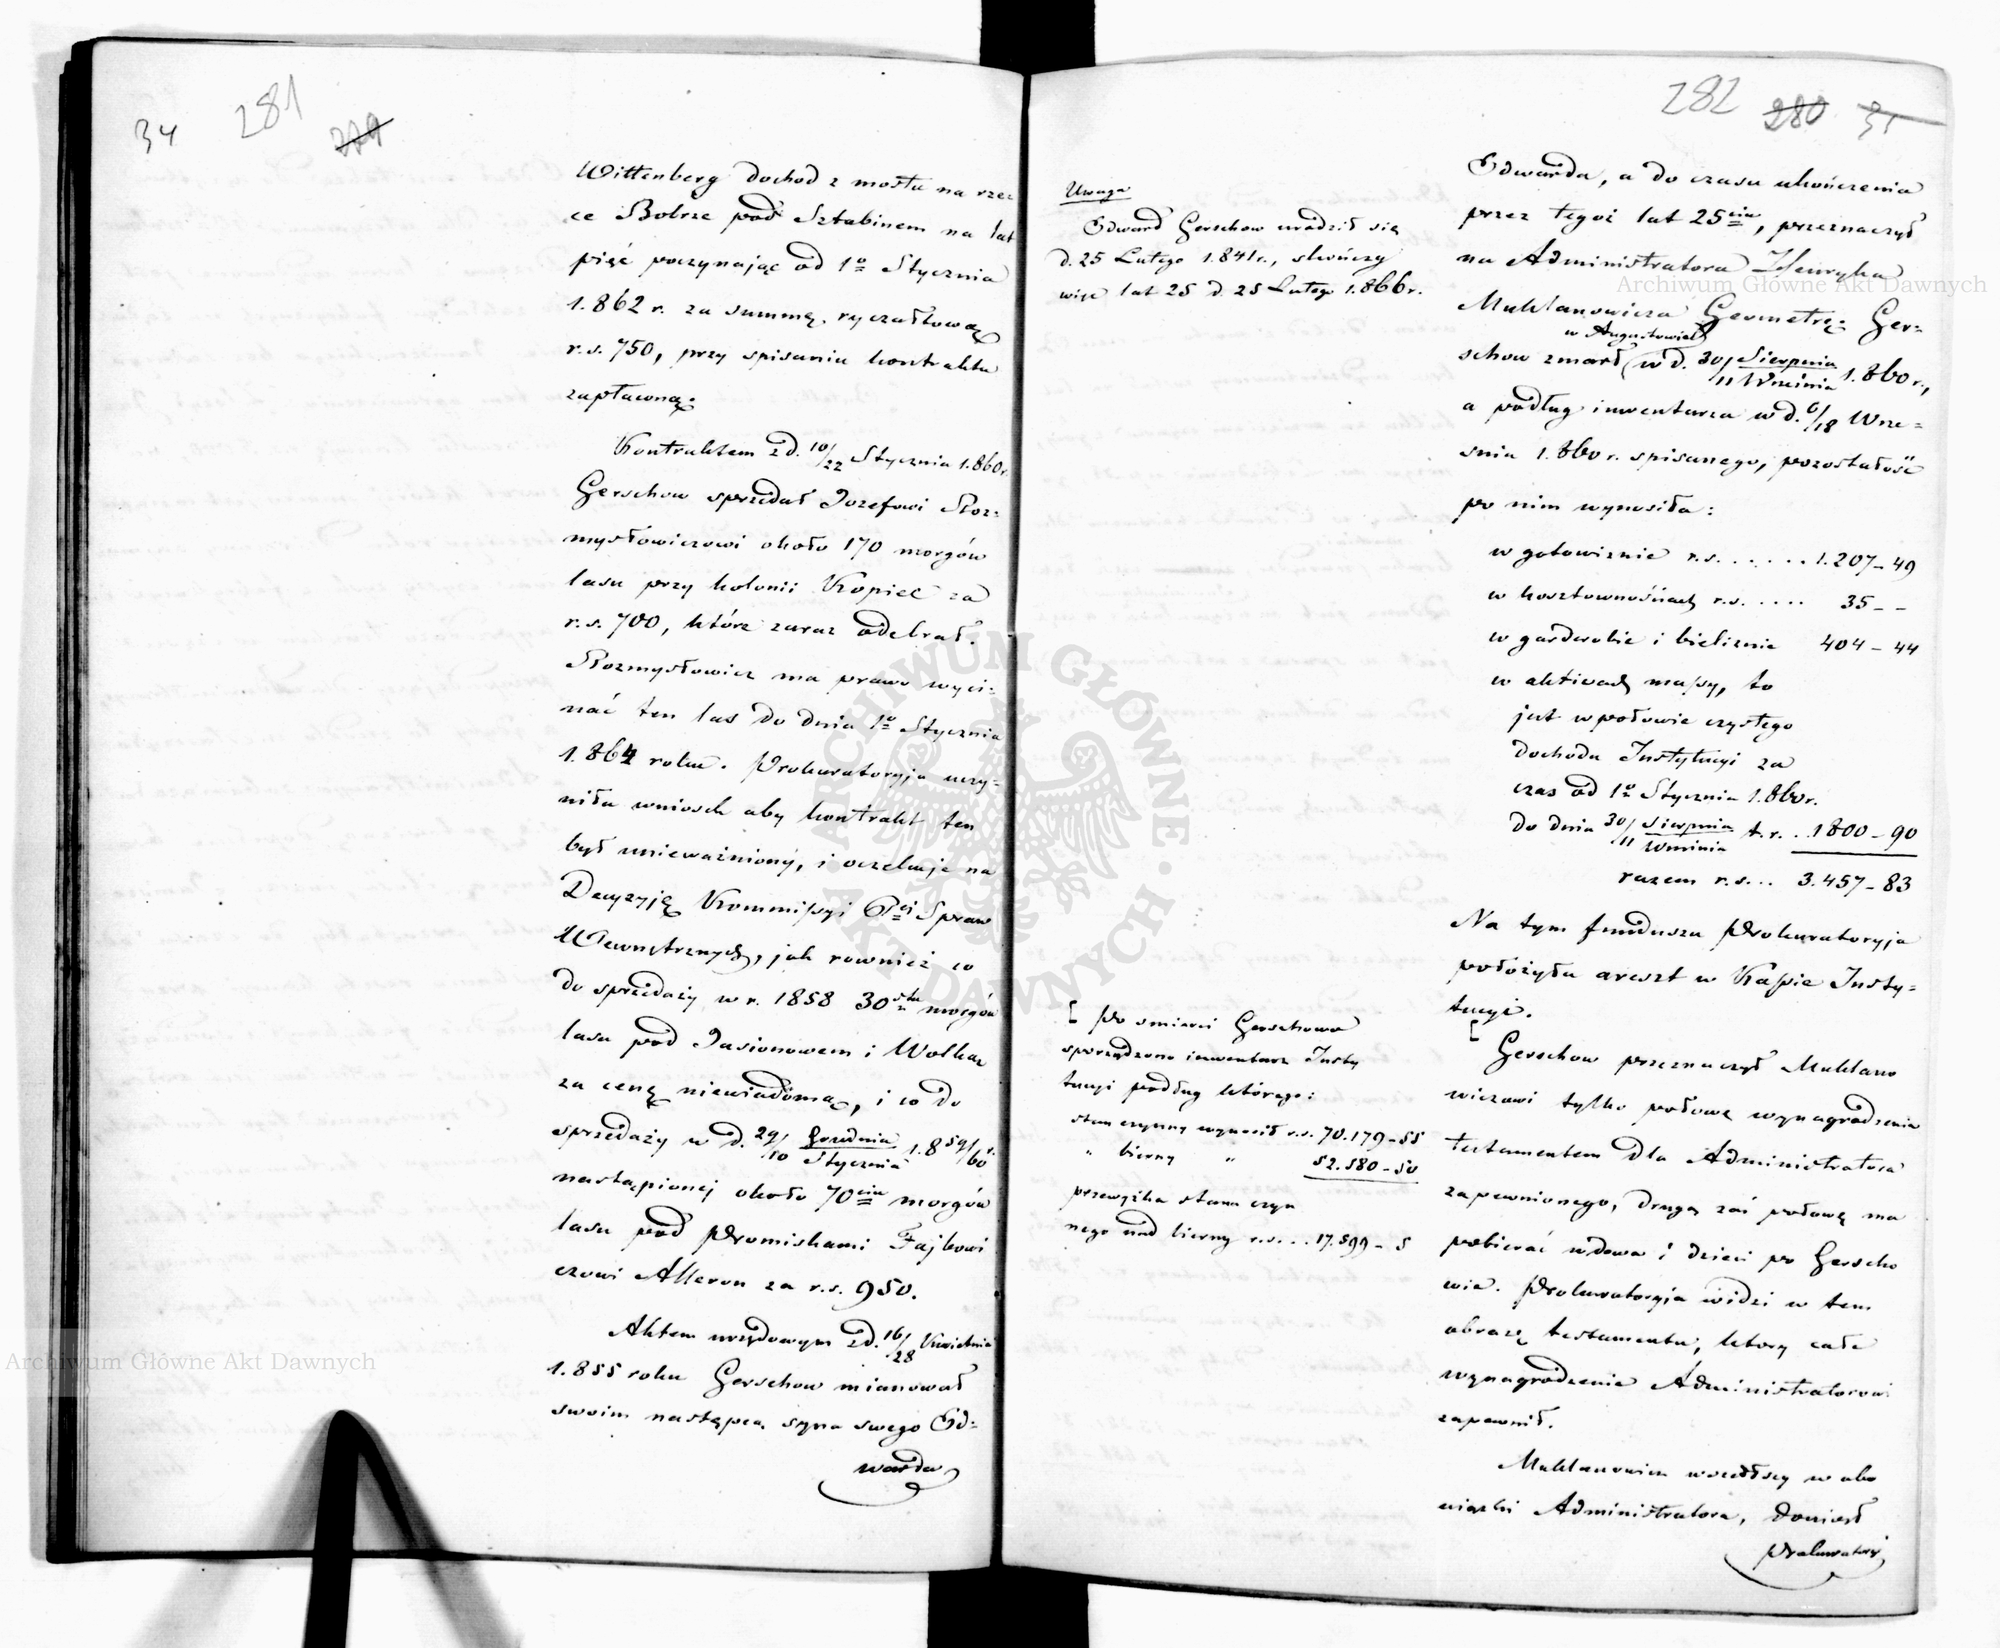 34 281 279
Wittenberg dochod z mostu na rze-
ce Bobrze pod Sztabinem na lat
pięć poczynając od 1o Stycznia
1.862 r. za summę ryczałtową
r.s. 750, przy spisaniu kontraktu
zapłaconą.
Kontraktem z d. 10/22 Stycznia 1.860 r.
Gerschow sprzedał Jozefowi Roz=
mysłowiczowi około 170 morgów
lasu przy kolonii Kopiec za
r.s. 700, które zaraz odebrał.
Rozmysłowicz ma prawo wyci=
nać ten las do dnia 1o Stycznia
1.864 roku. Prokuratoryja uczy=
niła wniosek aby kontrakt ten
był unieważniony, i oczekuje na
Decyzyję Kommissyi Rej Spraw
Wewnętrznych, jak rownież co
do sprzedaży w r. 1858 30stu morgów
lasu pod Jasionowem i Wolkusz
za cenę niewiadomą, i co do
sprzedaży w d. 29/10 Grudnia/Stycznia 1.859/60 r.
nastąpionej około 70ciu morgów
lasu pod Promiskami Fajbowi
czowi Alteron za r.s. 950.
Aktem urzędowym z d. 16/28 Kwietnia
1.855 roku Gerschow mianował
swoim następcą syna swego Ed=
warda
282 280 35
Uwaga
Edward Gerschow urodził się
d. 25 Lutego 1.841 r., skończy
więc lat 25 d. 25 Lutego 1.866 r.
Edwarda, a do czasu ukończenia
przez tegoż lat 25ciu, przeznaczył
na Administratora Henryka
Muklanowicza Geometrę. Ger=
w Augustowie
schow zmarł w d. 30/11 Sierpnia/Września 1.860 r.,
a podług inwentarza w d. 6/18 Wrze=
snia 1.860 r. spisanego, pozostałość
po nim wynosiła:
w gotowiznie r.s. . . . . . 1.207 - 49
w kosztownościach r.s. . . . . 35 - -
w garderobie i bieliznie 404 - 44
w aktivach massy, to
jest w połowie czystego
dochodu Instytucyi za
czas od 1o Stycznia 1.860 r.
do dnia 30/11 Sierpnia/Września t. r. . . 1800 - 90
razem r.s. . . 3.457 - 83
Na tym funduszu Prokuratoryja
położyła areszt w Kassie Insty=
tucyi.
[ Po smierci Gerschowa
sporządzono inwentarz Insty
tucyi podług którego:
stan czynny wynosił r.s. 70.179 - 55
" bierny " 52.580 - 50
przewyżka stanu czyn
nego nad bierny r.s. . . . 17.599 - 5
[ Gerschow przeznaczył Muklano
wiczowi tylko połowę wynagrodzenia
testamentem dla Administratora
zapewnionego, drugą zaś połowę ma
pobierać wdowa i dzieci po Gerscho
wie. Prokuratoryja widzi w tem
obrazę testamentu, ktory całe
wynagrodzenie Administratorowi
zapewnił.
Muklanowicz wszedłszy w obo
wiązki Administratora, doniosł
Prokuratoryi
ARCHIWUM GŁÓWNE AKT DAWNYCH
Archiwum Główne Akt Dawnych
Archiwum Główne Akt Dawnych